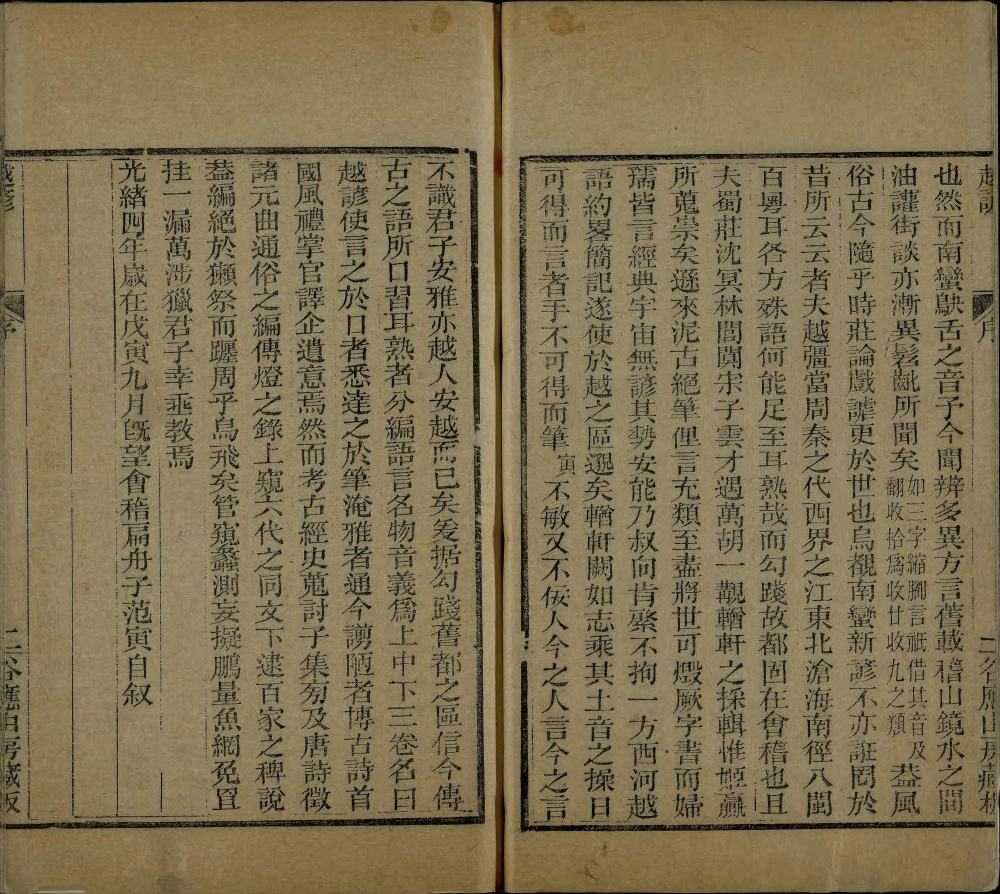 越諺
序
二谷應山房藏板
也然而南蠻鴃舌之音予今聞辨多異方言舊載稽山鏡水之間
油讙街談亦漸異髫齔所聞矣如三字縮腳言祇借其音及翻收拾爲收廿收九之類葢風
俗古今隨乎時莊論戲謔更於世也烏覩南蠻新諺不亦誑罔於
昔所云云者夫越彊當周秦之代西界之江東北滄海南徑八閩
百粵耳各方殊語何能足至耳熟哉而勾踐故都固在會稽也且
夫蜀莊沈冥林閭閴宋子雲才遇萬胡一覯輶軒之採輯惟姬嬴
所蒐崇矣遜來泥古絕筆俚言充類至盡將世可燬厥字書而婦
孺皆言經典宇宙無諺其勢安能乃叔向肯檠不拘一方西河越
語約畧簡記遂使於越之區遯矣輶軒闕如志乘其土音之操日
可得而言者手不可得而筆寅不敏又不佞人今之人言今之言
不識君子安雅亦越人安越而已矣爰据勾踐舊都之區信今傳
古之語所口習耳熟者分編語言名物音義爲上中下三卷名曰
越諺使言之於口者悉達之於筆淹雅者通今謭陋者博古詩首
國風禮掌官譯企遺意焉然而考古經史蒐討子集旁及唐詩徵
諸元曲通俗之編傳燈之錄上窺六代之同文下逮百家之稗說
葢編絕於獺祭而躧周乎鳥飛矣管窺蠡測妄擬鵬量魚網兔罝
挂一漏萬涉獵君子幸垂教焉
光緖四年歲在戊寅九月旣望會稽扁舟子范寅自叙
越諺
序
二谷應山房藏板